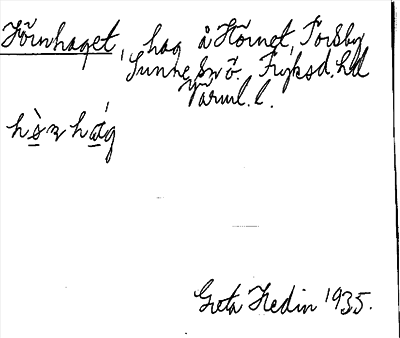 Hörnhaget, hag å Hörnet, Forsby
Sunne sn ö. Fryksd. hd
Värml. l.
Greta Hedin 1935.